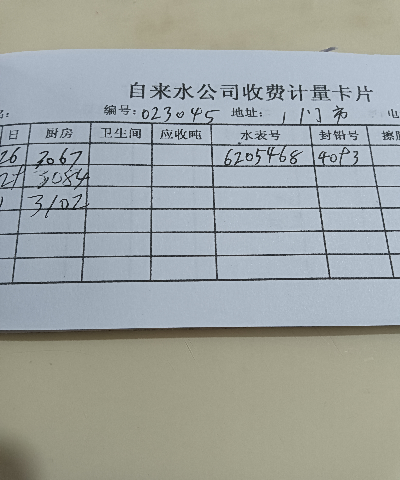 自来水公司收费计量卡片
编号: 023045 地址: 1门市
日 厨房 卫生间 应收吨 水表号 封铅号
26 3067 6205468 4093
3084
3102